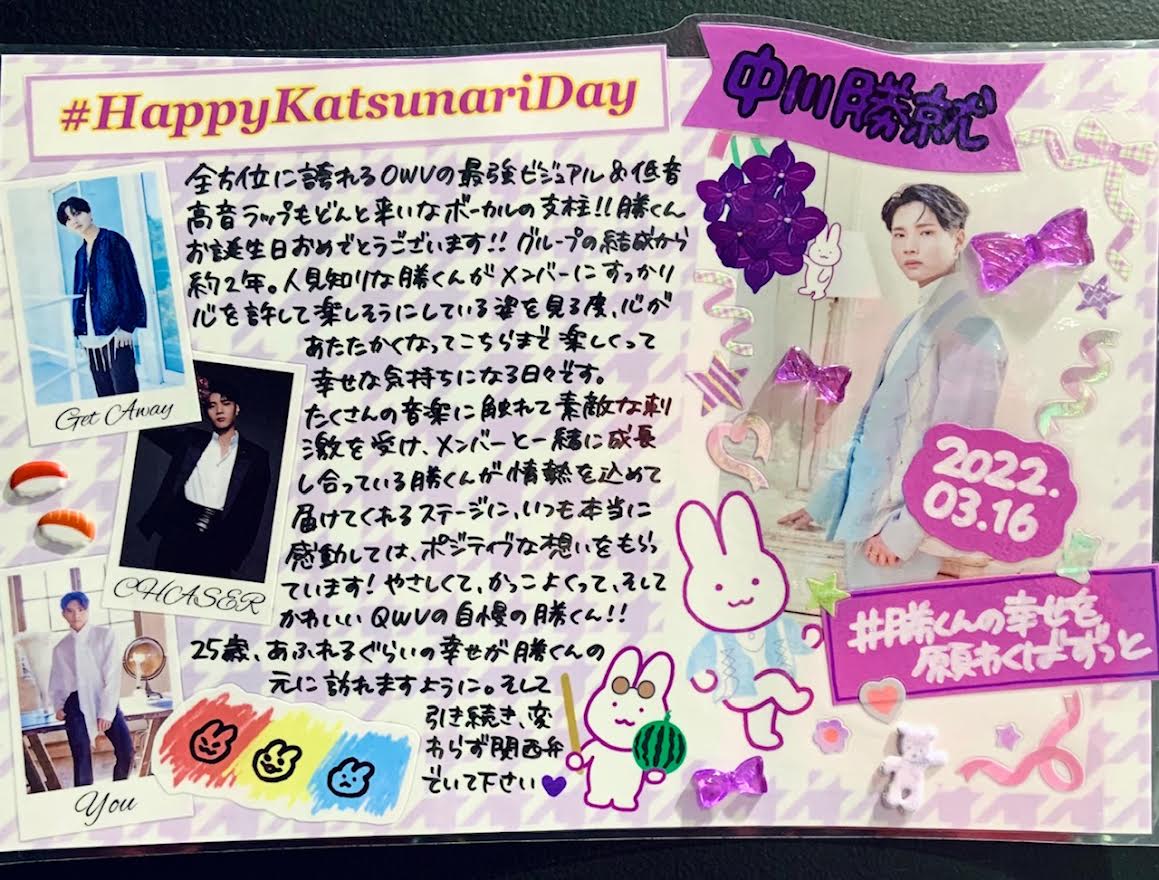 #HappyKatsunariDay
中川勝就
全方位に誇れるOWVの最強ビジュアル&低音
高音ラップもどんと来いなボーカルの支柱!!勝くん
お誕生日おめでとうございます!!グループの結成から
約2年。人見知りな勝くんがメンバーにすっかり
心を許して楽しそうにしている姿を見る度、心が
あたたかくなってこちらまで楽しくって
幸せな気持ちになる日々です。
たくさんの音楽に触れて素敵な刺
激を受け、メンバーと一緒に成長
し合っている勝くんが情熱を込めて
届けてくれるステージに、いつも本当に
感動しては、ポジティブな想いをもらっ
ています!やさしくて、かっこよくって、そして
かわいいQWVの自慢の勝くん!!
25歳、あふれるぐらいの幸せが勝くんの
元に訪れますように。そして
引き続き、変
わらず関西弁
でいて下さい
Get Away
CHASER
You
2022.
03.16
#勝くんの幸せを
願わくばずっと